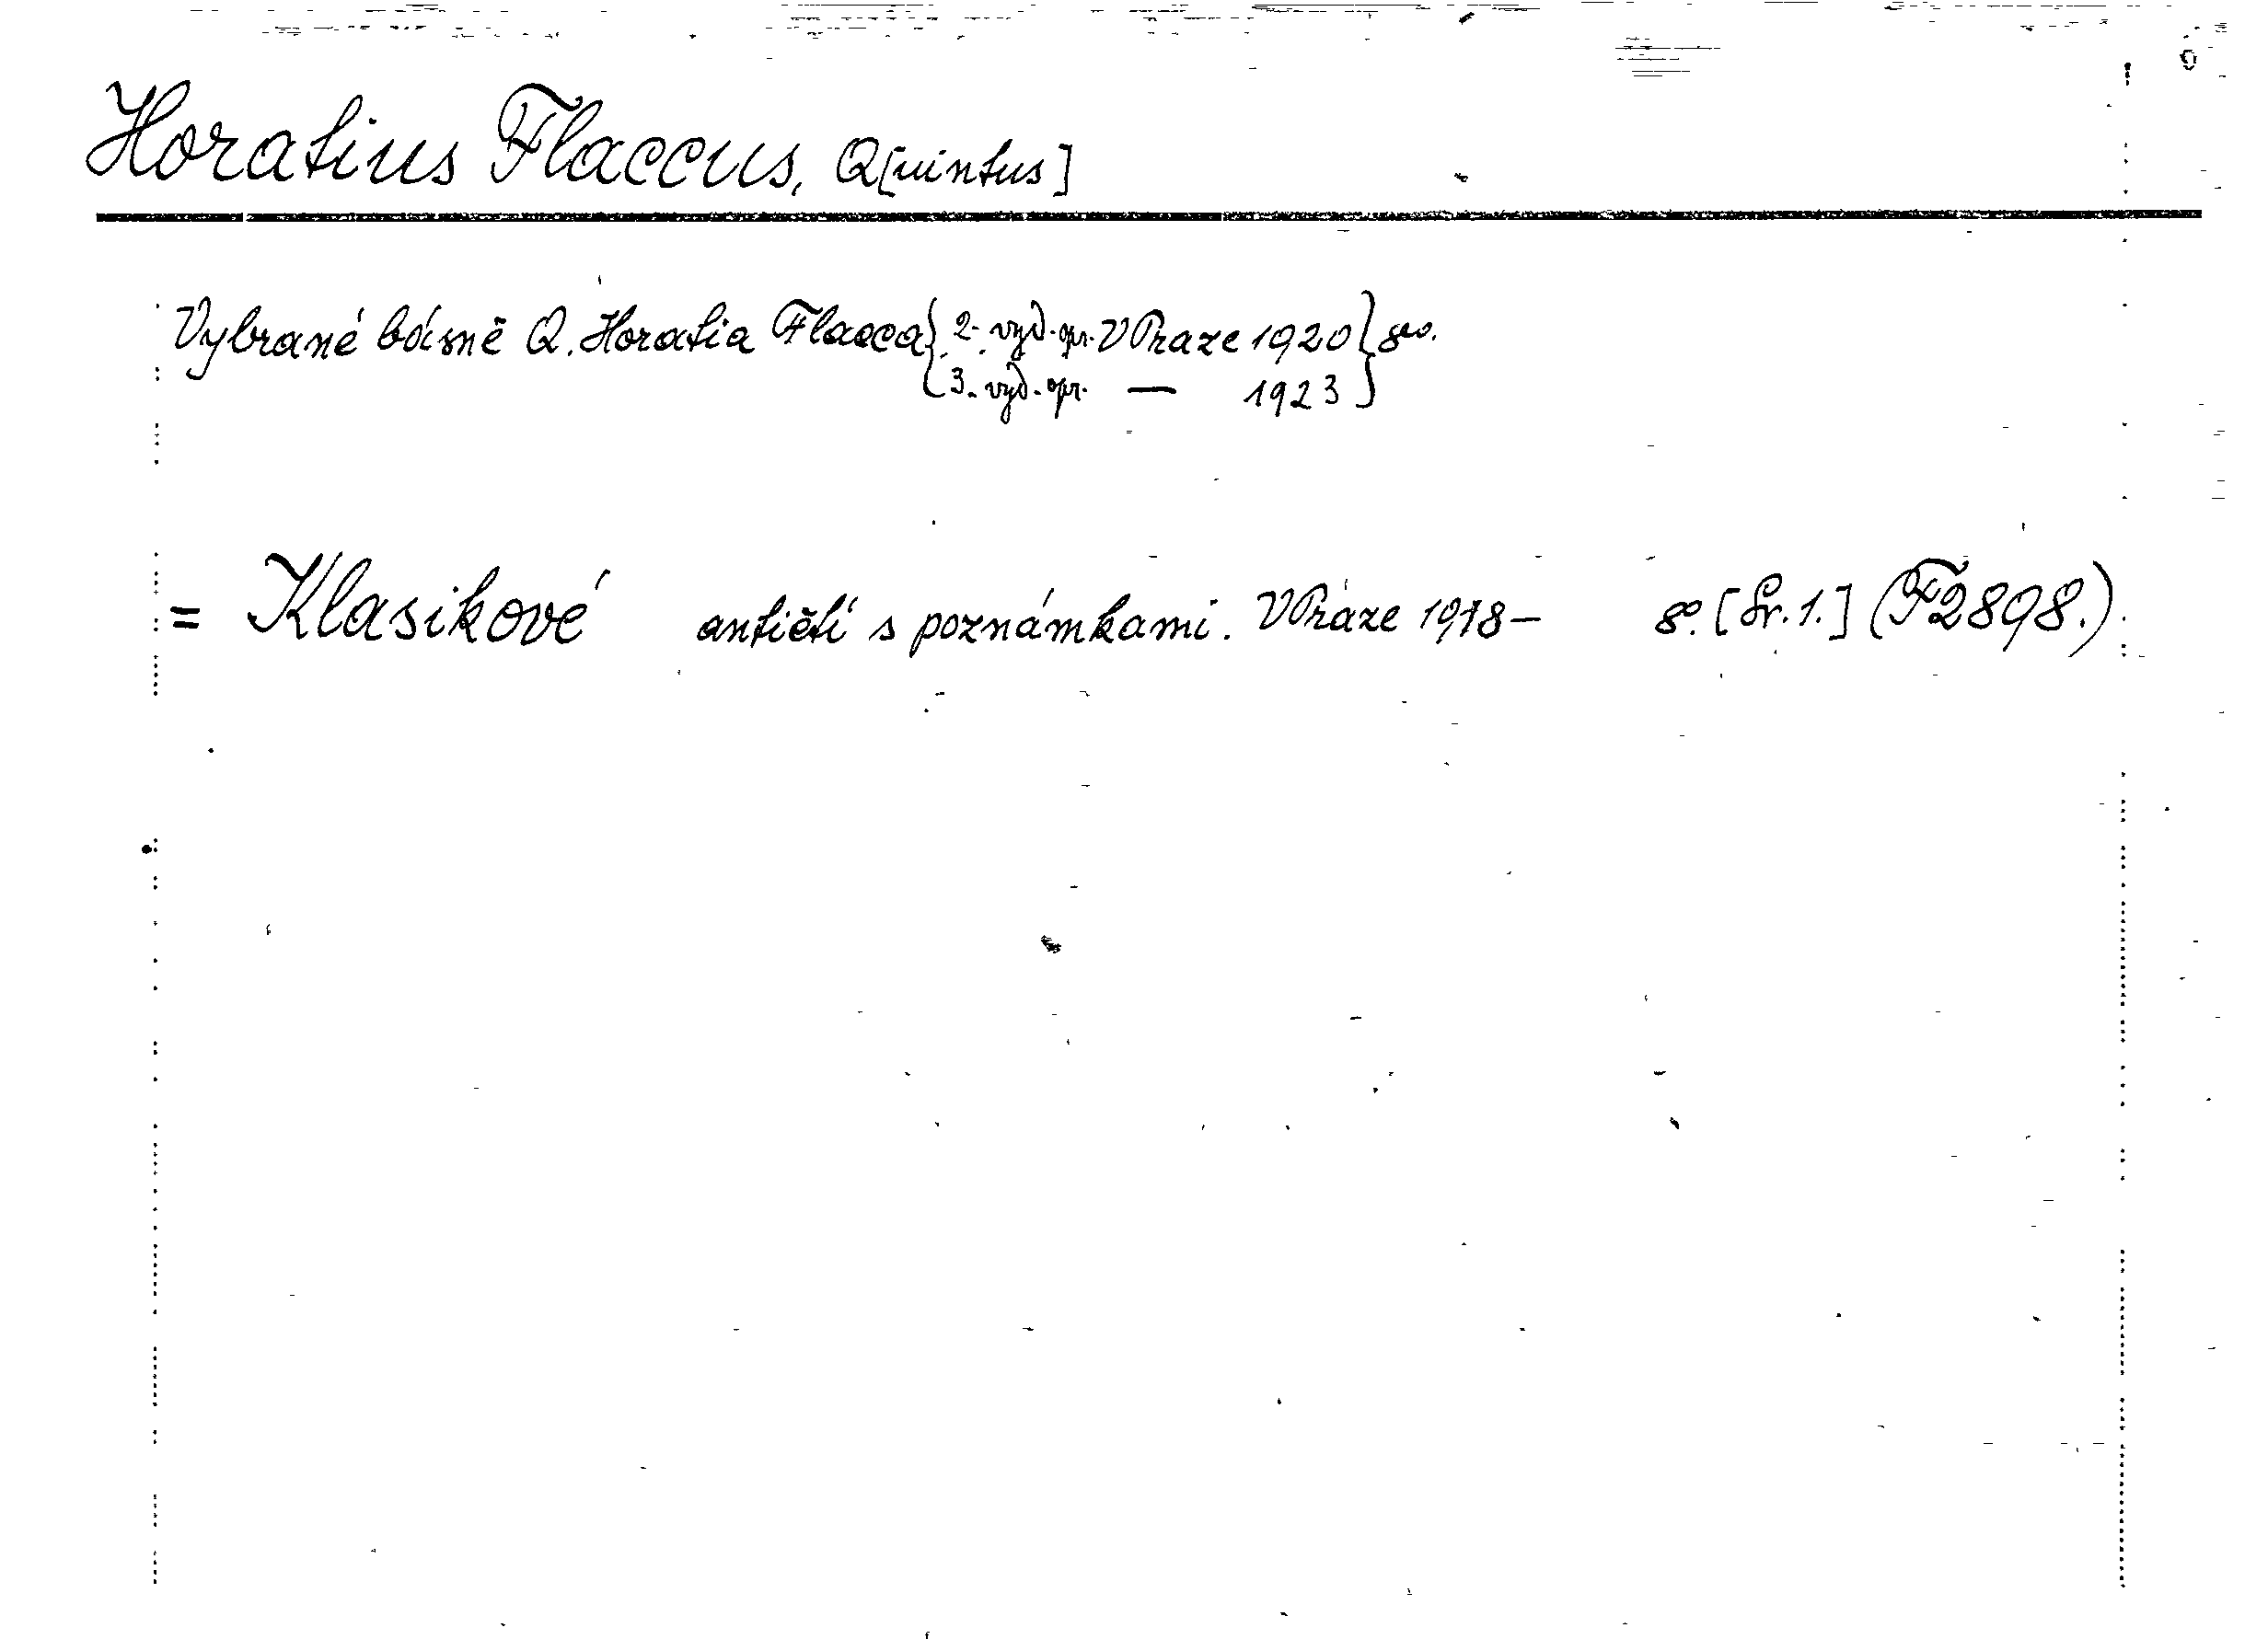 Horatius Flaccus, Q[uintus]
Vybrané básně Q. Horatia Flacca { 2. vyd. opr. V Praze 1920 } 8vo.
{ 3. vyd. opr. — 1923 }
= Klasikové antičtí s poznámkami. V Praze 1918– 8º. [Sv. 1.] (F2898.)